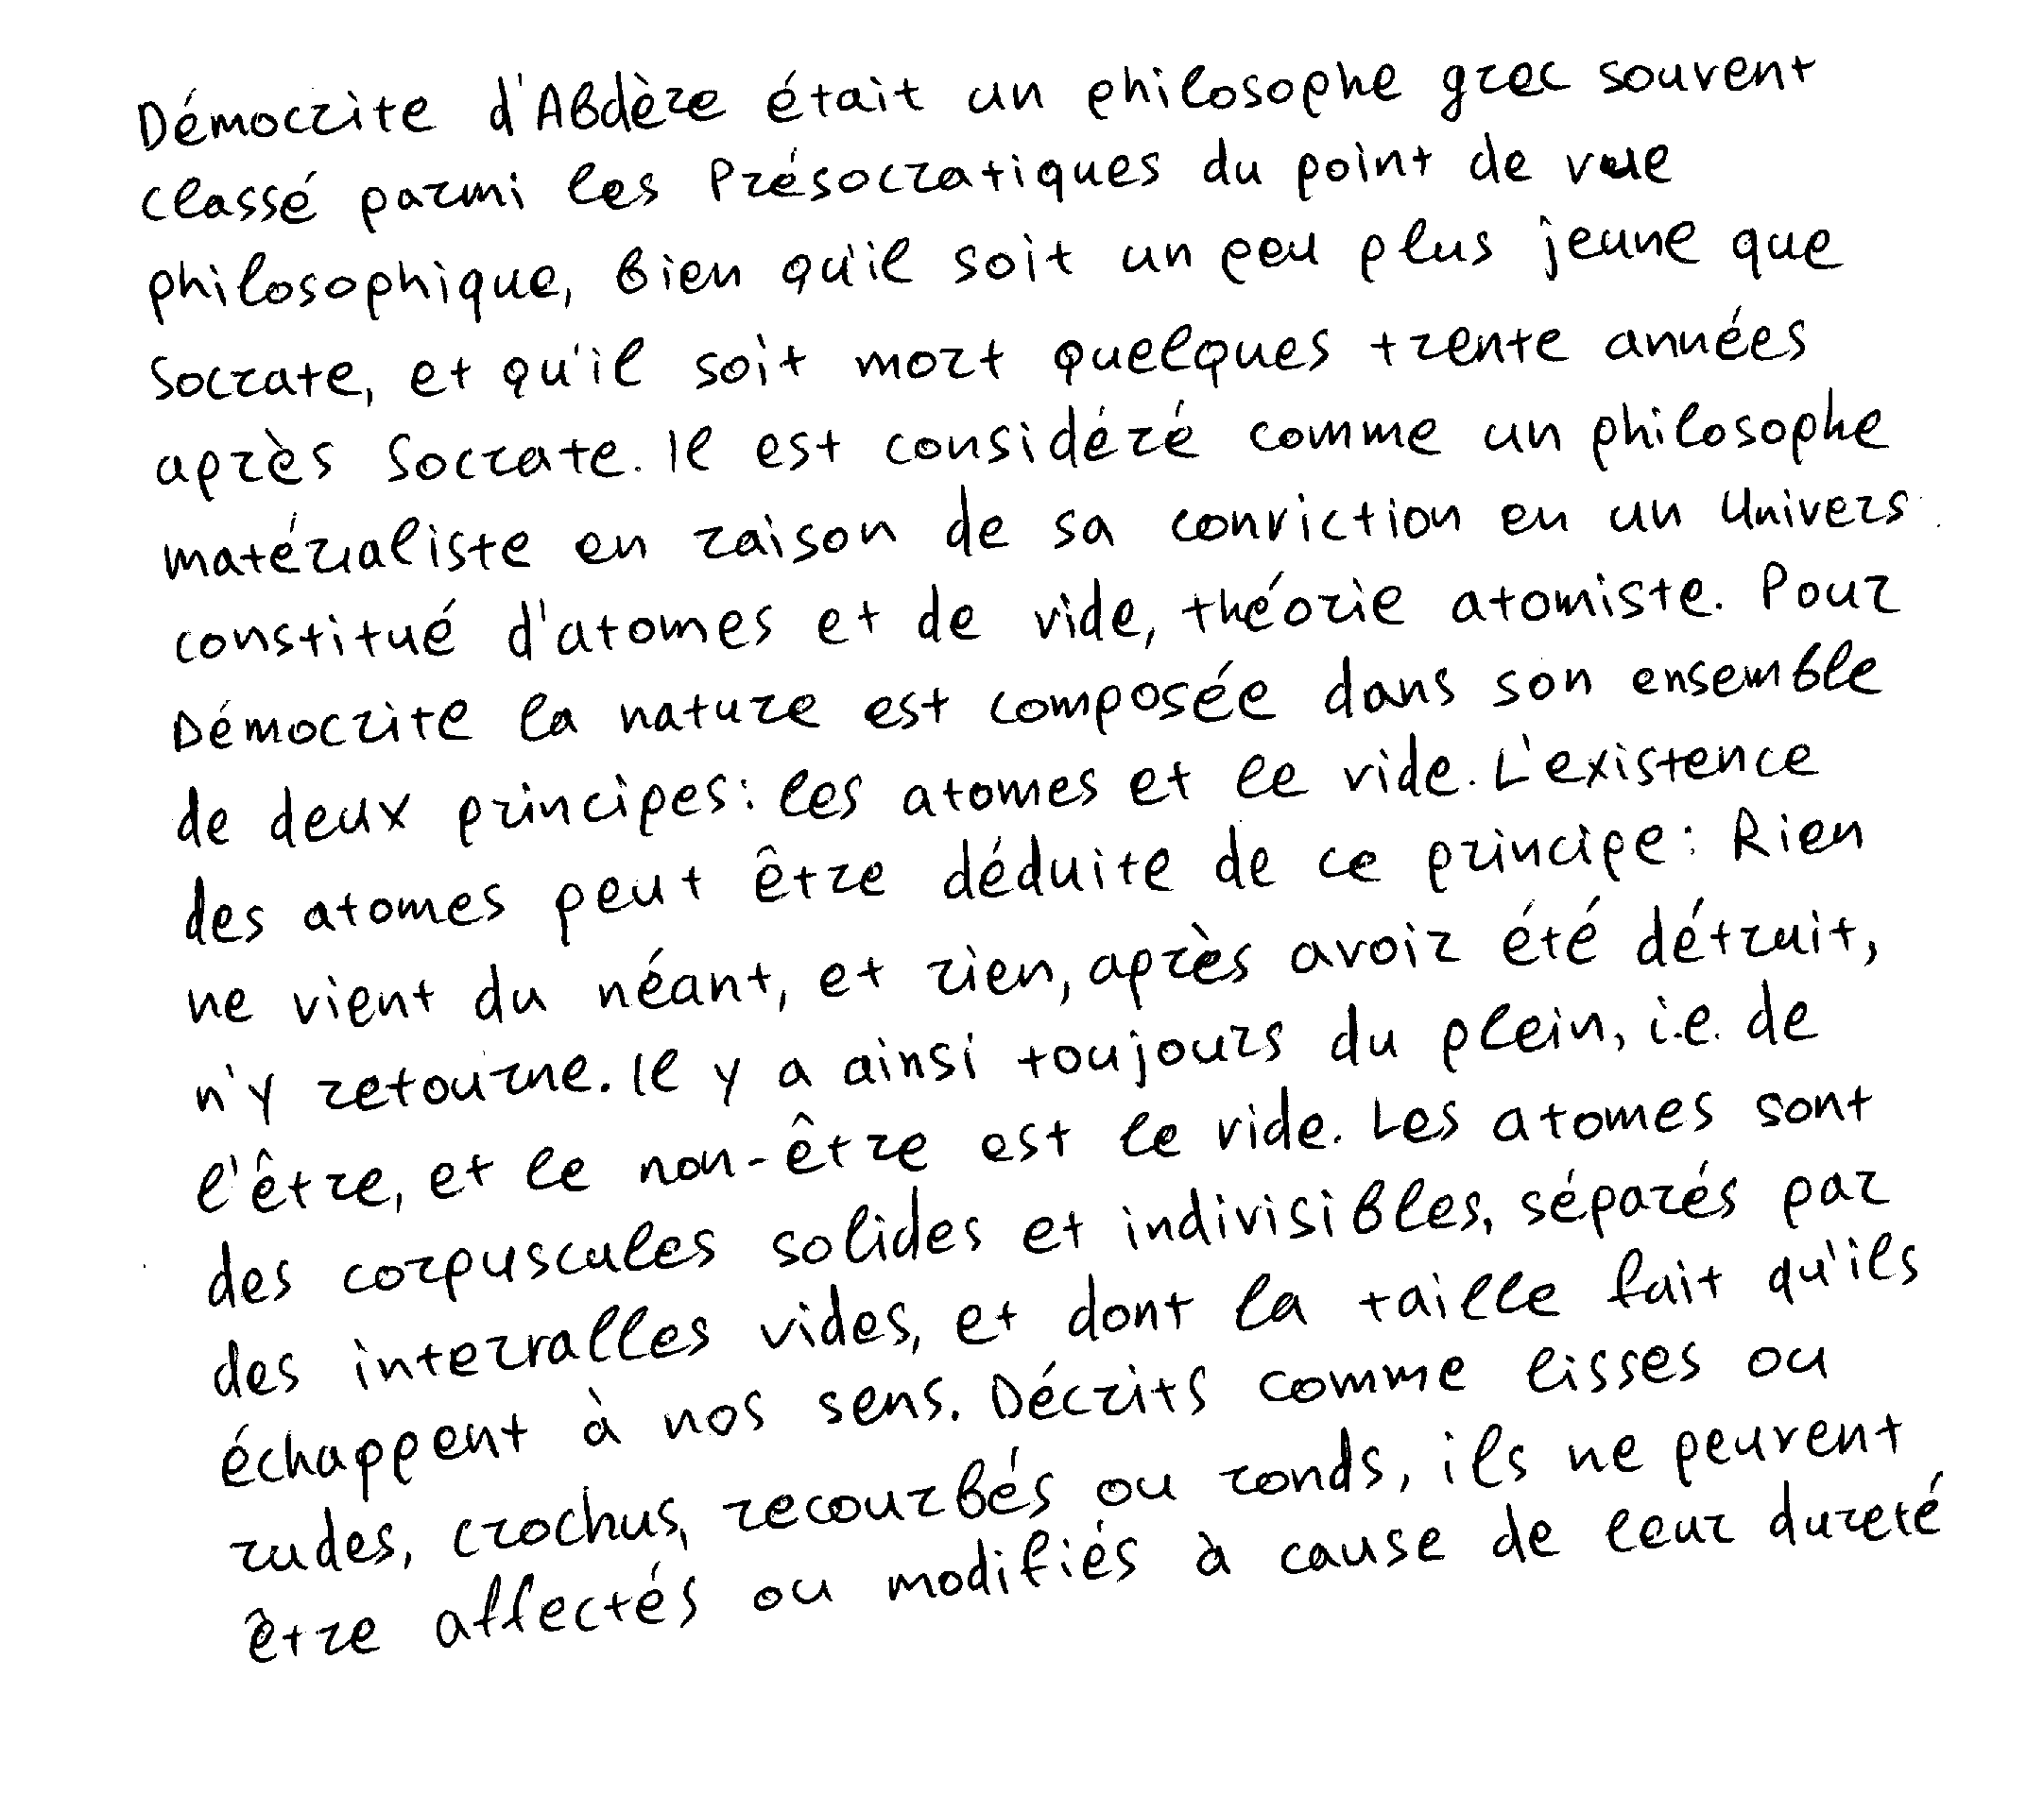 Démocrite d'Abdère était un philosophe grec souvent
classé parmi les Présocratiques du point de vue
philosophique, bien qu'il soit un peu plus jeune que
Socrate, et qu'il soit mort quelques trente années
après Socrate. Il est considéré comme un philosophe
matérialiste en raison de sa conviction en un Univers
constitué d'atomes et de vide, théorie atomiste. Pour
Démocrite la nature est composée dans son ensemble
de deux principes: les atomes et le vide. L'existence
des atomes peut être déduite de ce principe: Rien
ne vient du néant, et rien, après avoir été détruit,
n'y retourne. Il y a ainsi toujours du plein, i.e. de
l'être, et le non-être est le vide. Les atomes sont
des corpuscules solides et indivisibles, séparés par
des intervalles vides, et dont la taille fait qu'ils
échappent à nos sens. Décrits comme lisses ou
rudes, crochus, recourbés ou ronds, ils ne peuvent
être affectés ou modifiés à cause de leur dureté